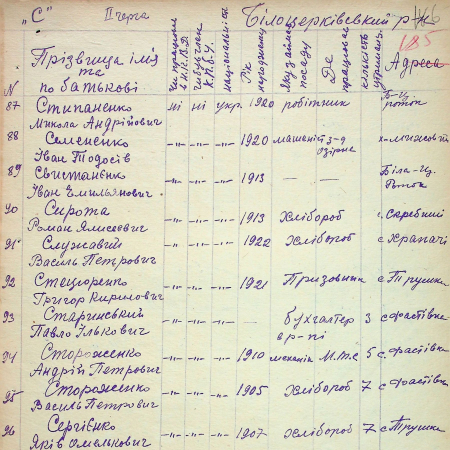 "С" II черга Білоцерківський р-н
185
N Прізвища ім'я та по батькові Чи працював в Н.К.В.Д. національність Рік народження Яку займав посаду Де працював кількість утриманц. Адреса
87 Степаненко Микола Андрійович ні ні укр. 1920 робітник
88 Семененко Іван Тодосів —"— —"— —"— 1920 машиніст
89 Свистаненко Іван Емильянович —"— —"— —"— 1913 — — Біла-Ц.
90 Сирота Роман Ялисеевич —"— —"— —"— 1913 Хлібороб
91 Службвий Василь Петрович —"— —"— —"— 1922 Хлібороб с Храпачі
92 Стецюренко Григор Кирилович —"— —"— —"— 1921 Призовник с Трушки
93 Старинський Павло Ількович —"— —"— —"— — бухгалтер 3 с Фастівка
94 Стороженко Андрій Петрович —"— —"— —"— 1910 механік М.Т.С 5 с Фастівка
95 Стороженко Василь Петрович —"— —"— —"— 1905 Хлібороб 7 с Фастівка
96 Сергієнко Яків Омелькович —"— —"— —"— 1907 Хлібороб 7 с Трушки